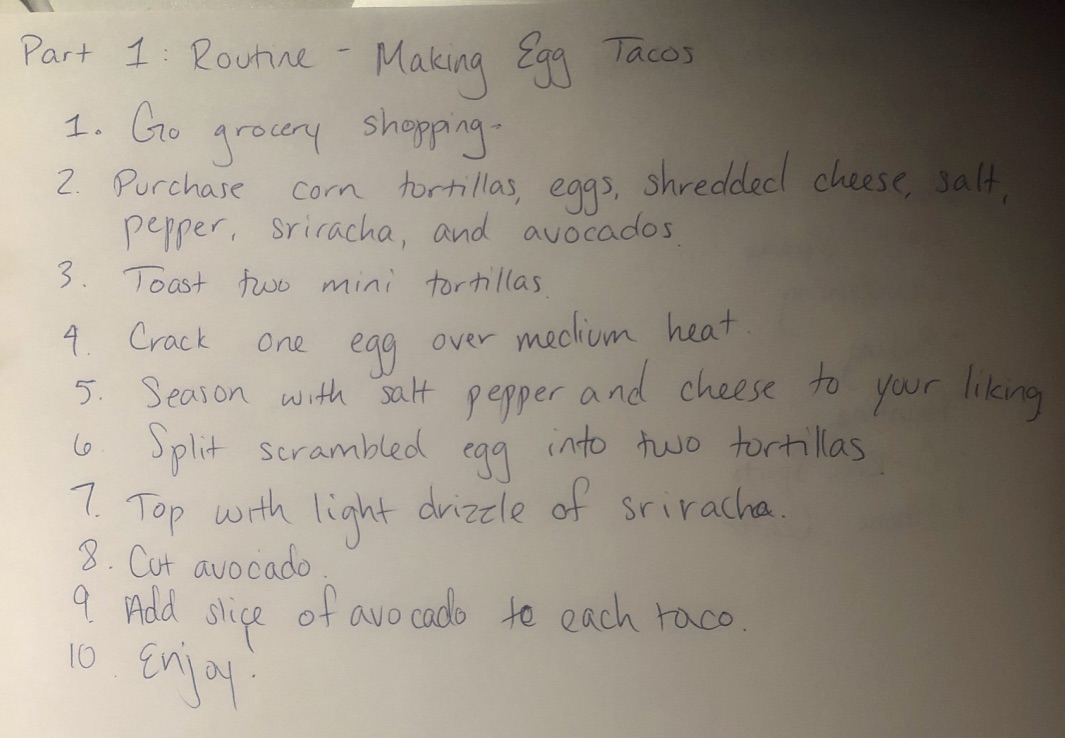 Part 1: Routine - Making Egg Tacos
1. Go grocery shopping.
2. Purchase corn tortillas, eggs, shredded cheese, salt,
pepper, sriracha, and avocados.
3. Toast two mini tortillas.
4. Crack one egg over medium heat.
5. Season with salt pepper and cheese to your liking
6 Split scrambled egg into two tortillas
7. Top with light drizzle of sriracha.
8. Cut avocado.
9. Add slice of avocado to each taco.
10. Enjoy!